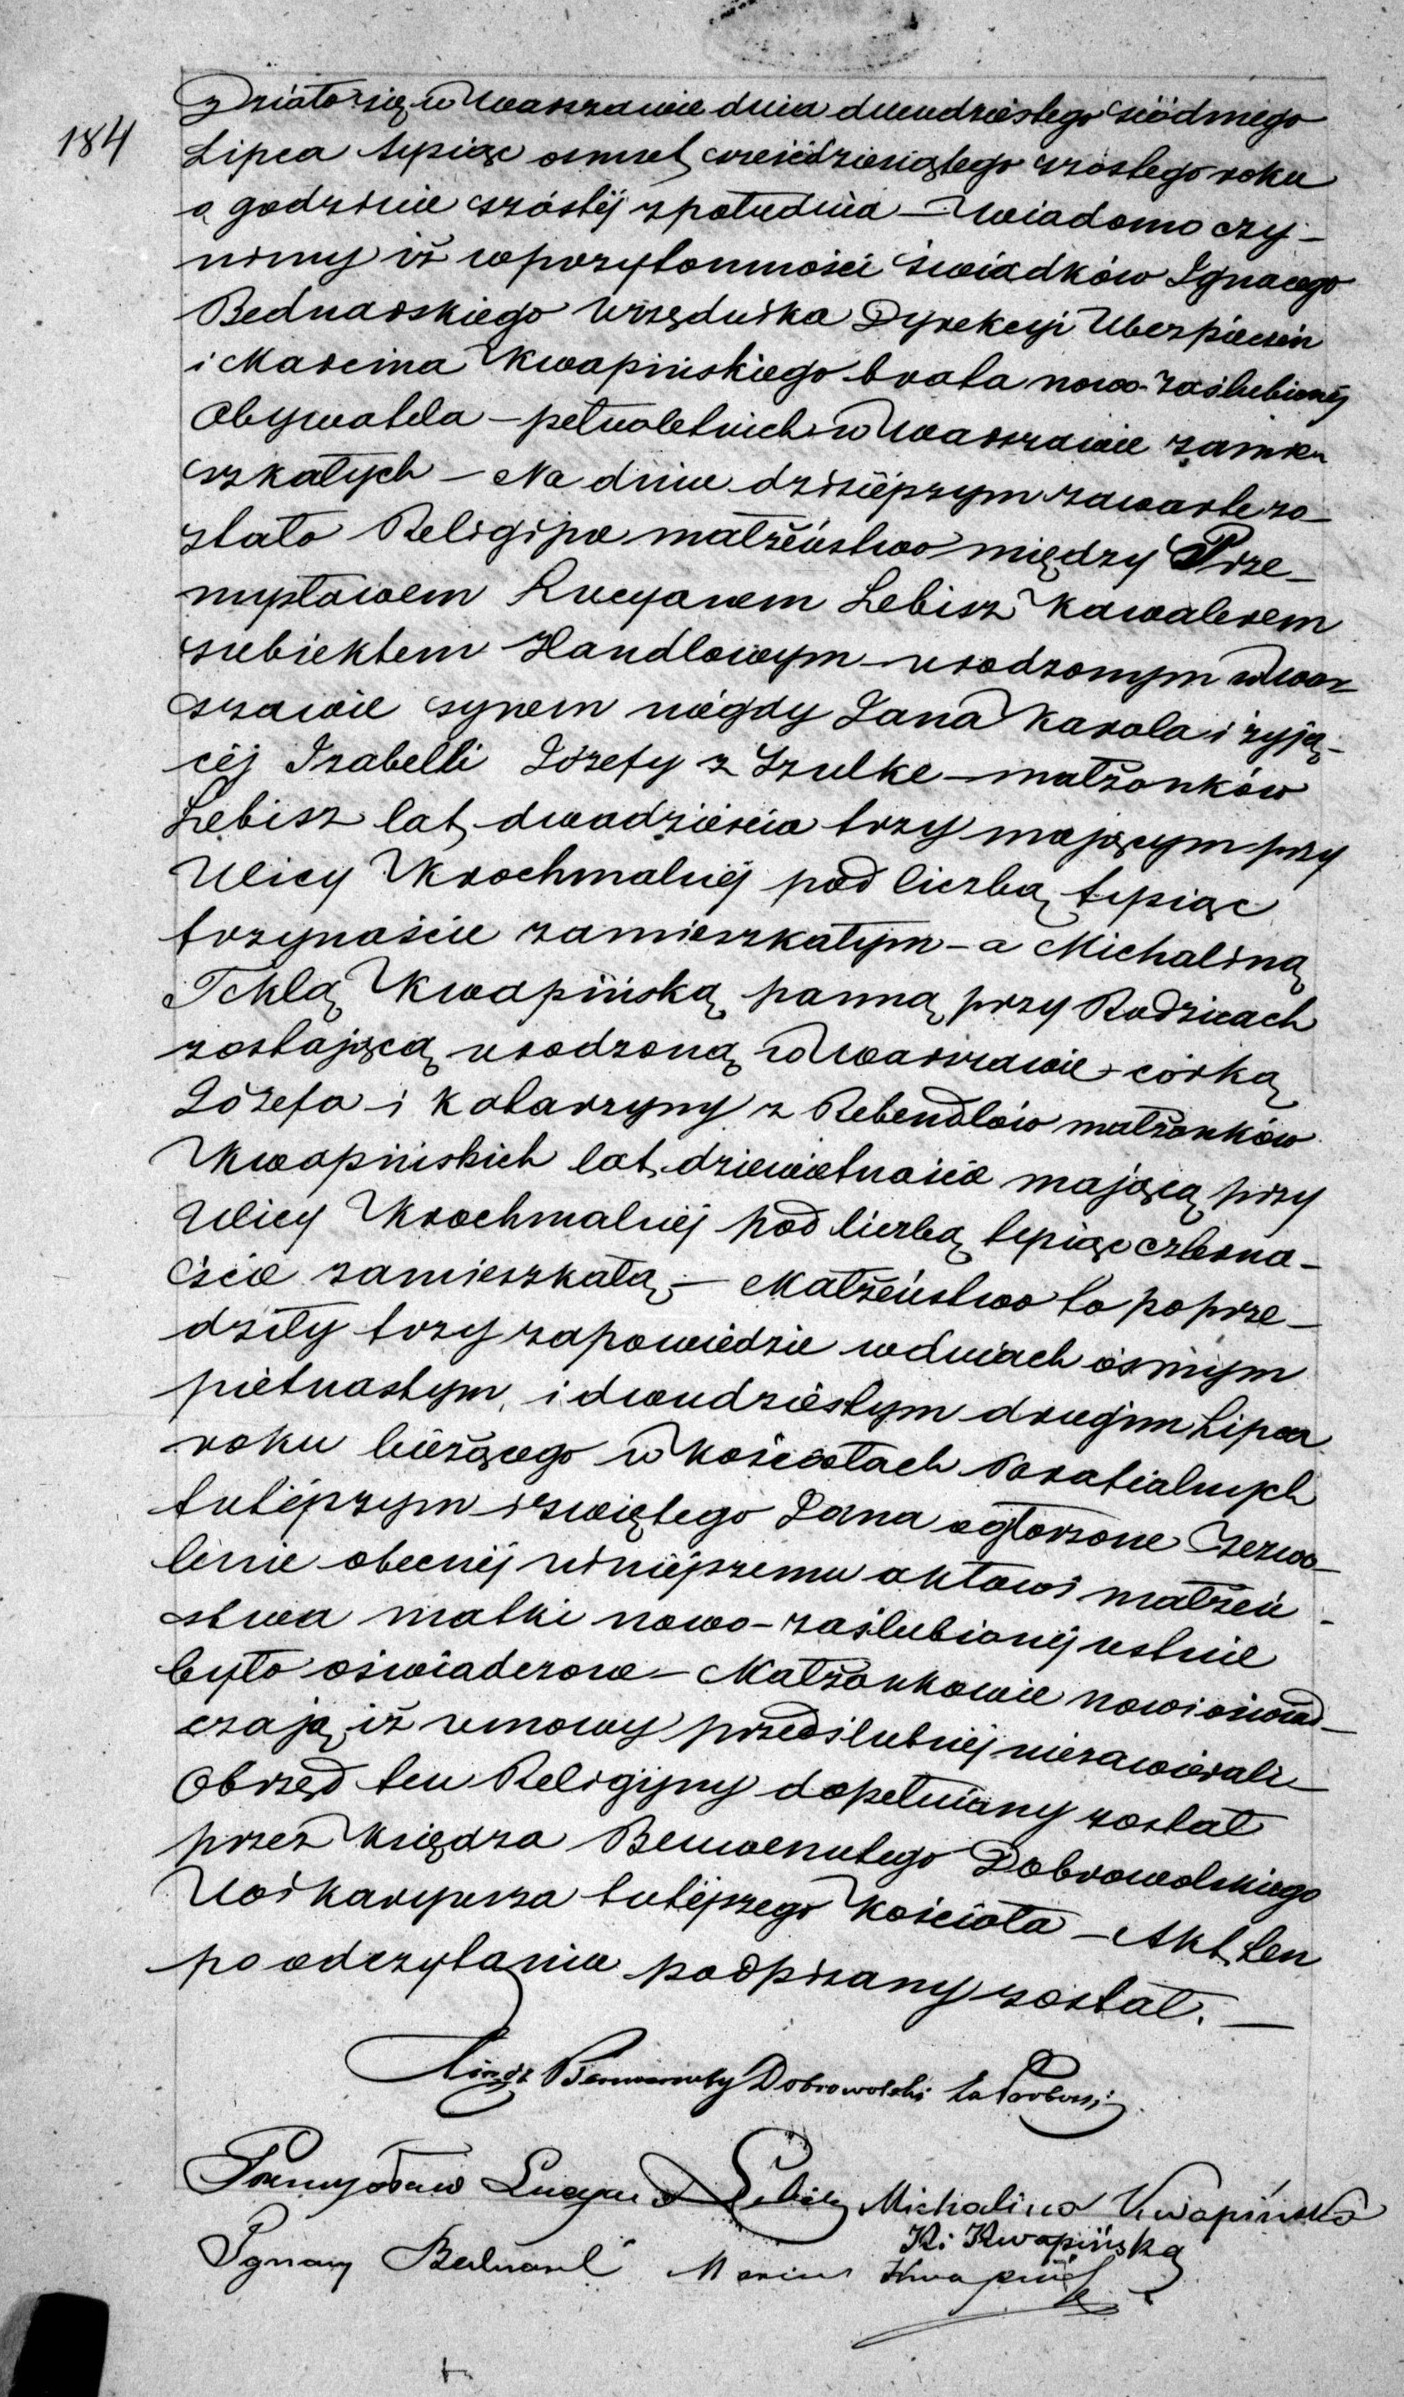 184
Działo się w Warszawie dnia dwudziestego siódmego
Lipca tysiąc ośmset sześćdziesiątego szóstego roku
o godzinie szóstéj z południa – Wiadomo czy-
nimy iż w przytomności świadków Ignacego
Bednarskiego Urzędnika Dyrekcyi Ubezpieczeń
i Marcina Kwapińskiego brata nowo-zaślubionéj
Obywatela – pełnoletnich w Warszawie zamie-
szkałych – Na dniu dzisiéjszym zawarte zo-
stało Religijne małżeństwo między Prze-
mysławem Lucyanem Lebisz Kawalerem
subiektem Handlowym urodzonym w War-
szawie synem niégdy Jana Karola i żyją-
céj Izabelli Józefy z Szulke – małżonków
Lebisz lat dwadzieścia trzy mającym przy
Ulicy Krochmalnéj pod liczbą tysiąc
trzynaście zamieszkałym – a Michaliną
Teklą Kwapińską panną przy Rodzicach
zostającą urodzoną w Warszawie córką
Józefa i Katarzyny z Rebendlów małżonków
Kwapińskich lat dziewiętnaście mającą przy
Ulicy Krochmalnéj pod liczbą tysiąc czterna-
ście zamieszkałą – Małżeństwo to poprze-
dziły trzy zapowiedzie w dniach ósmym
piętnastym, i dwudziestym drugim Lipca
roku bieżącego w kościołach Parafialnych
tutéjszym i świętego Jana ogłoszone Zezwo-
lenie obecnéj niniéjszemu aktowi małżeń-
stwa matki nowo-zaślubionéj ustnie
było oświadczone – Małżonkowie nowi oświad-
czają iż umowy przedślubnéj niezawiérali
Obrzęd ten Religijny dopełniony został
przez księdza Benwenutego Dobrowolskiego
Wikaryusza tutéjszego kościoła – Akt ten
po odczytaniu podpisany został. –
Xiądz Benwenuty Dobrowolski za Probosz.
Przemysław Lucyan Lebisz Michalina Kwapińska
K: Kwapińska
Ignacy Bednarski Marcin Kwapiński